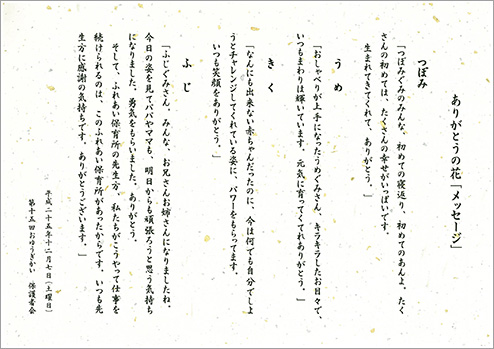 ありがとうの花「メッセージ」
つぼみ
「つぼみぐみのみんな、初めての寝返り、初めてのあんよ、たく
さんの初めては、たくさんの幸せがいっぱいです。
生まれてきてくれて、ありがとう。」
うめ
「おしゃべりが上手になったうめぐみさん、キラキラしたお目々で、
いつもまわりは輝いています。元気に育ってくれてありがとう。」
きく
「なんにも出来ない赤ちゃんだったのに、今は何でも自分でしよ
うとチャレンジしてくれている姿に、パワーをもらってます。
いつも笑顔をありがとう。」
ふじ
「ふじぐみさん、みんな、お兄さんお姉さんになりましたね。
今日の姿を見てパパやママも、明日からも頑張ろうと思う気持ち
になりました。勇気をもらいました。ありがとう。
そして、ふれあい保育所の先生方、私たちがこうやって仕事を
続けられるのは、このふれあい保育所があったからです。いつも先
生方に感謝の気持ちです。ありがとうございます。」
平成二十五年十二月七日（土曜日）
第十五回おゆうぎかい 保護者会